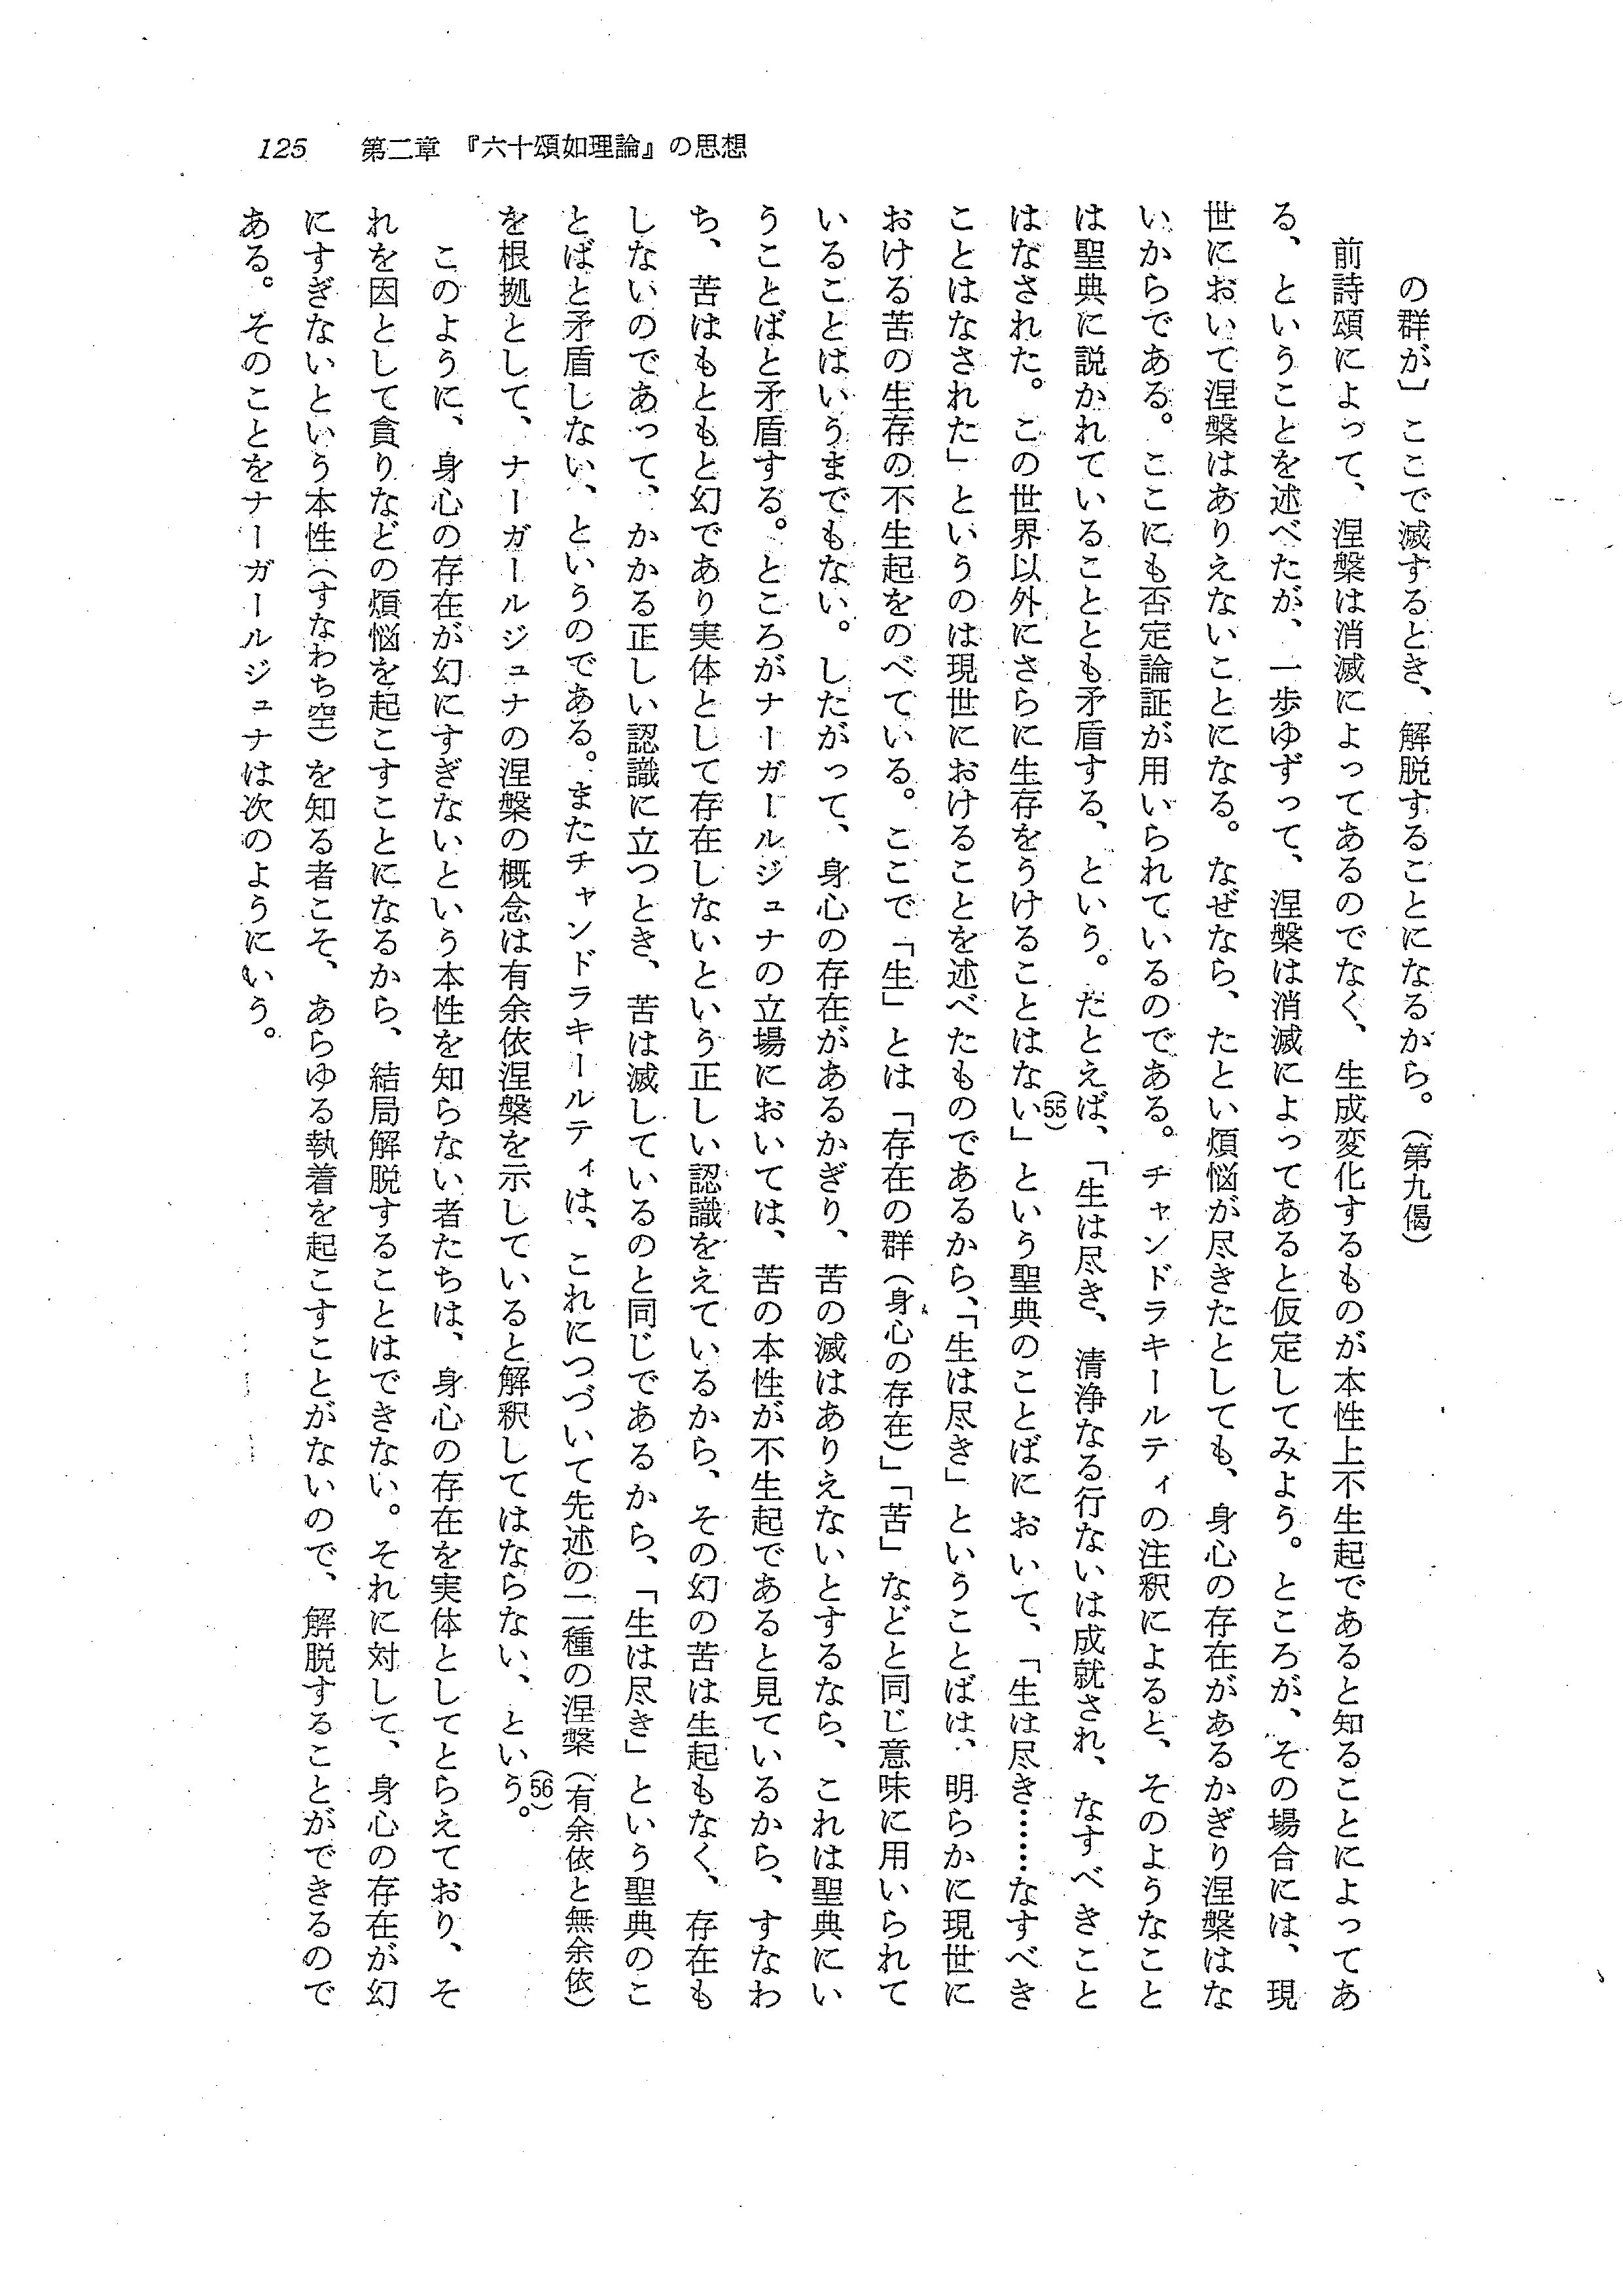 125　第二章　『六十頌如理論』の思想
の群が〕ここで滅するとき、解脱することになるから。（第九偈）
前詩頌によって、涅槃は消滅によってあるのでなく、生成変化するものが本性上不生起であると知ることによってあ
る、ということを述べたが、一歩ゆずって、涅槃は消滅によってあると仮定してみよう。ところが、その場合には、現
世において涅槃はありえないことになる。なぜなら、たとい煩悩が尽きたとしても、身心の存在があるかぎり涅槃はな
いからである。ここにも否定論証が用いられているのである。チャンドラキールティの注釈によると、そのようなこと
は聖典に説かれていることとも矛盾する、という。たとえば、「生は尽き、清浄なる行ないは成就され、なすべきこと
はなされた。この世界以外にさらに生存をうけることはない」(55)という聖典のことばにおいて、「生は尽き……なすべき
ことはなされた」というのは現世におけることを述べたものであるから、「生は尽き」ということばは、明らかに現世に
おける苦の生存の不生起をのべている。ここで「生」とは「存在の群（身心の存在）」「苦」などと同じ意味に用いられて
いることはいうまでもない。したがって、身心の存在があるかぎり、苦の滅はありえないとするなら、これは聖典にい
うことばと矛盾する。ところがナーガールジュナの立場においては、苦の本性が不生起であると見ているから、すなわ
ち、苦はもともと幻であり実体として存在しないという正しい認識をえているから、その幻の苦は生起もなく、存在も
しないのであって、かかる正しい認識に立つとき、苦は滅しているのと同じであるから、「生は尽き」という聖典のこ
とばと矛盾しない、というのである。またチャンドラキールティは、これにつづいて先述の二種の涅槃（有余依と無余依）
を根拠として、ナーガールジュナの涅槃の概念は有余依涅槃を示していると解釈してはならない、という。(56)
このように、身心の存在が幻にすぎないという本性を知らない者たちは、身心の存在を実体としてとらえており、そ
れを因として貪りなどの煩悩を起こすことになるから、結局解脱することはできない。それに対して、身心の存在が幻
にすぎないという本性（すなわち空）を知る者こそ、あらゆる執着を起こすことがないので、解脱することができるので
ある。そのことをナーガールジュナは次のようにいう。